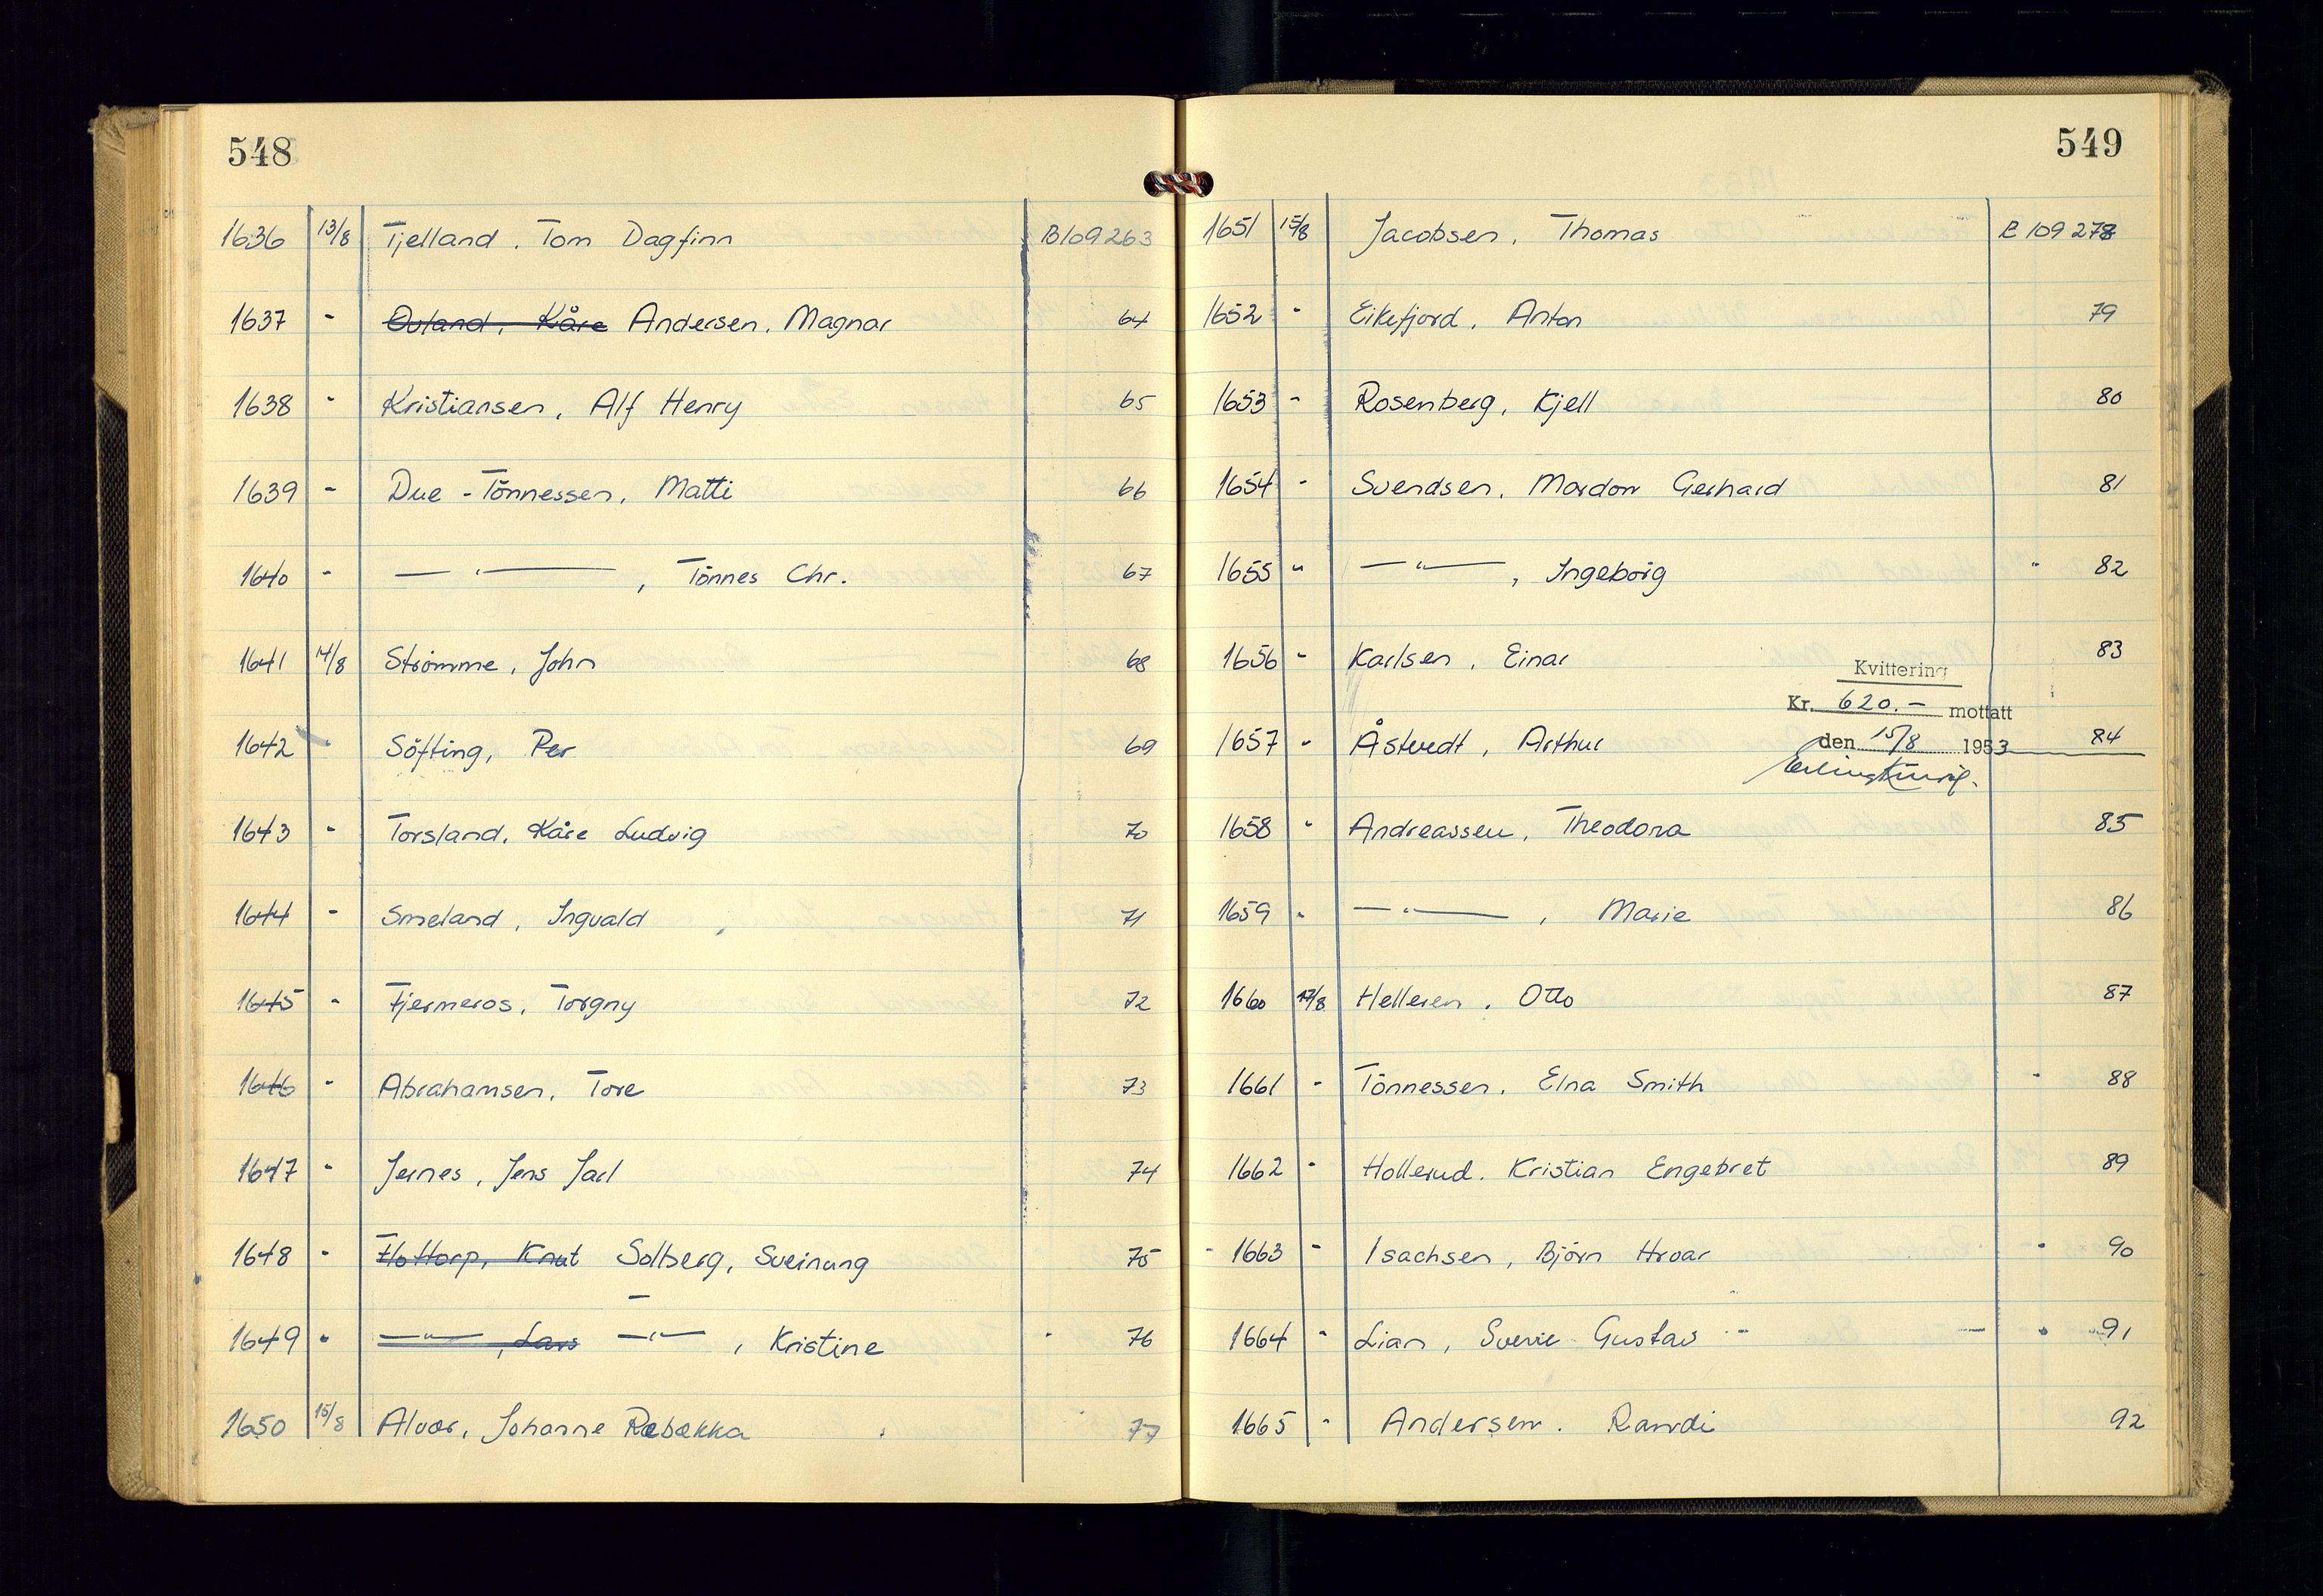 548
1636 13/8 Tjelland, Tom Dagfinn B109263
1637 - Ovland, Kåre Andersen, Magnar 64
1638 - Kristiansen, Alf Henry 65
1639 - Due-Tönnessen, Matti 66
1640 - —"— , Tönnes Chr. 67
1641 14/8 Strömme, John 68
1642 - Söfting, Per 69
1643 - Torsland, Kåre Ludvig 70
1644 - Smeland, Ingvald 71
1645 - Fjermeros, Torgny 72
1646 - Abrahamsen, Tore 73
1647 - Jernes, Jens Jarl 74
1648 - Knut Solberg, Sveinung 75
1649 - —"— , Lars —"— , Kristine 76
1650 15/8 Alvær, Johanne Rebekka 77
549
1651 15/8 Jacobsen, Thomas 109278
1652 - Eikefjord, Anton 79
1653 - Rosenberg, Kjell 80
1654 - Svendsen, Mardon Gerhard 81
1655 " —"— , Ingeborg 82
1656 - Karlsen, Einar 83
Kvittering
Kr. 620.- mottatt
1657 - Åstvedt, Arthur 84
den 15/8 1953
1658 - Andreassen, Theodora 85
1659 - —"— , Marie 86
1660 17/8 Helleren, Otto 87
1661 - Tönnessen, Elna Smith 88
1662 - Hollerud, Kristian Engebret 89
1663 - Isachsen, Björn Hroar 90
1664 - Lian, Sverre Gustav 91
1665 - Andersen, Randi 92